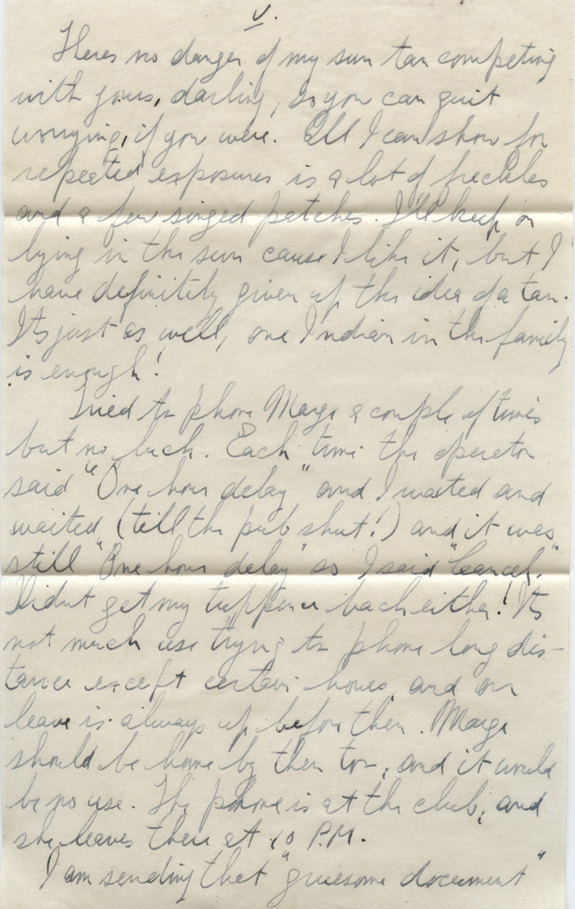 V.
Theres no danger of my sun tan competing
with yours, darling, so you can quit
worrying, if you were. All I can show for
repeated exposures is a lot of freckles
and a few singed patches. I'll keep on
lying in the sun cause I like it, but I
have definitely given up the idea of a tan.
Its just as well, one Indian in the family
is enough!
Tried to phone Marge a couple of times
but no luck. Each time the operator
said "One hour delay" and I waited and
waited (till the pub shut!) and it was
still "One hour delay" so I said "Cancel."
Didnt get my tuppence back either! Its
not much use trying to phone long dis-
tance except certain hours, and our
leave is always up before then. Marge
should be home by then too, and it would
be no use. The phone is at the club, and
she leaves there at 10 P.M.
I am sending that "gruesome document"